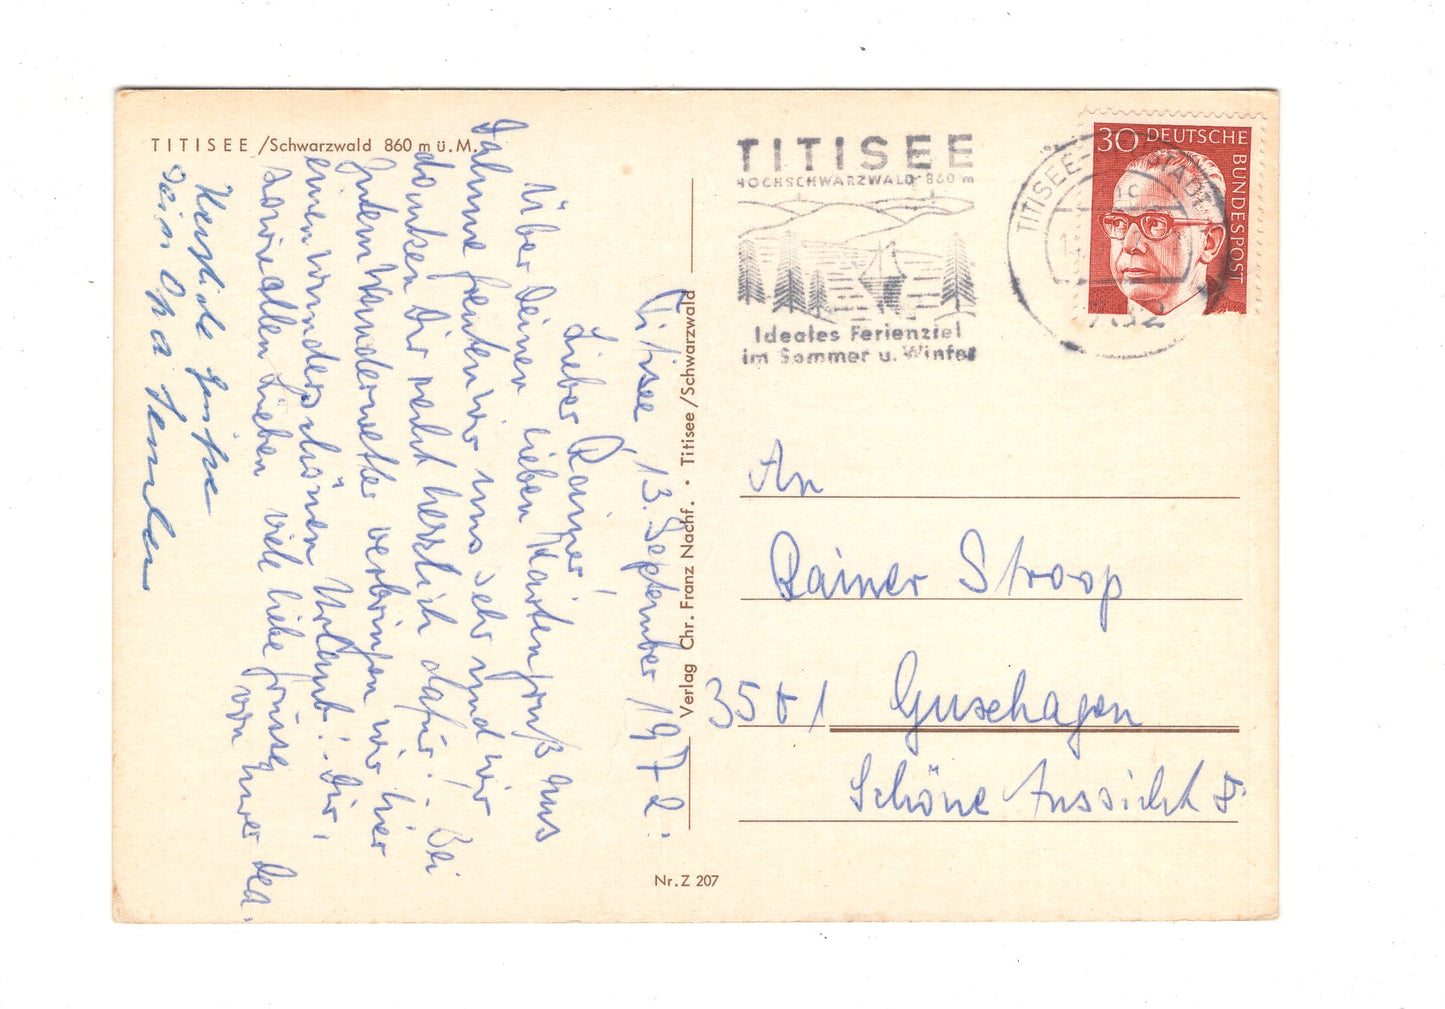 TITISEE /Schwarzwald 860 m ü. M.
Titisee, 13. September 1972.
Lieber Rainer!
Über Deinen lieben Kartengruß aus
Dahme freuten wir uns sehr und wir
danken Dir recht herzlich dafür! Bei
gutem Wanderwetter verbringen wir hier
einen wunderschönen Urlaub! Dir,
sowie allen Lieben viele liebe Grüsse
von
Herzliche Grüße
Dein
Verlag Chr. Franz Nachf. • Titisee /Schwarzwald
Nr. Z 207
TITISEE
HOCHSCHWARZWALD 860 m
Ideales Ferienziel
im Sommer u. Winter
TITISEE-NEUSTADT
30 DEUTSCHE
BUNDESPOST
An
Rainer Stroop
3501 Guxhagen
Schöne Aussicht 8.